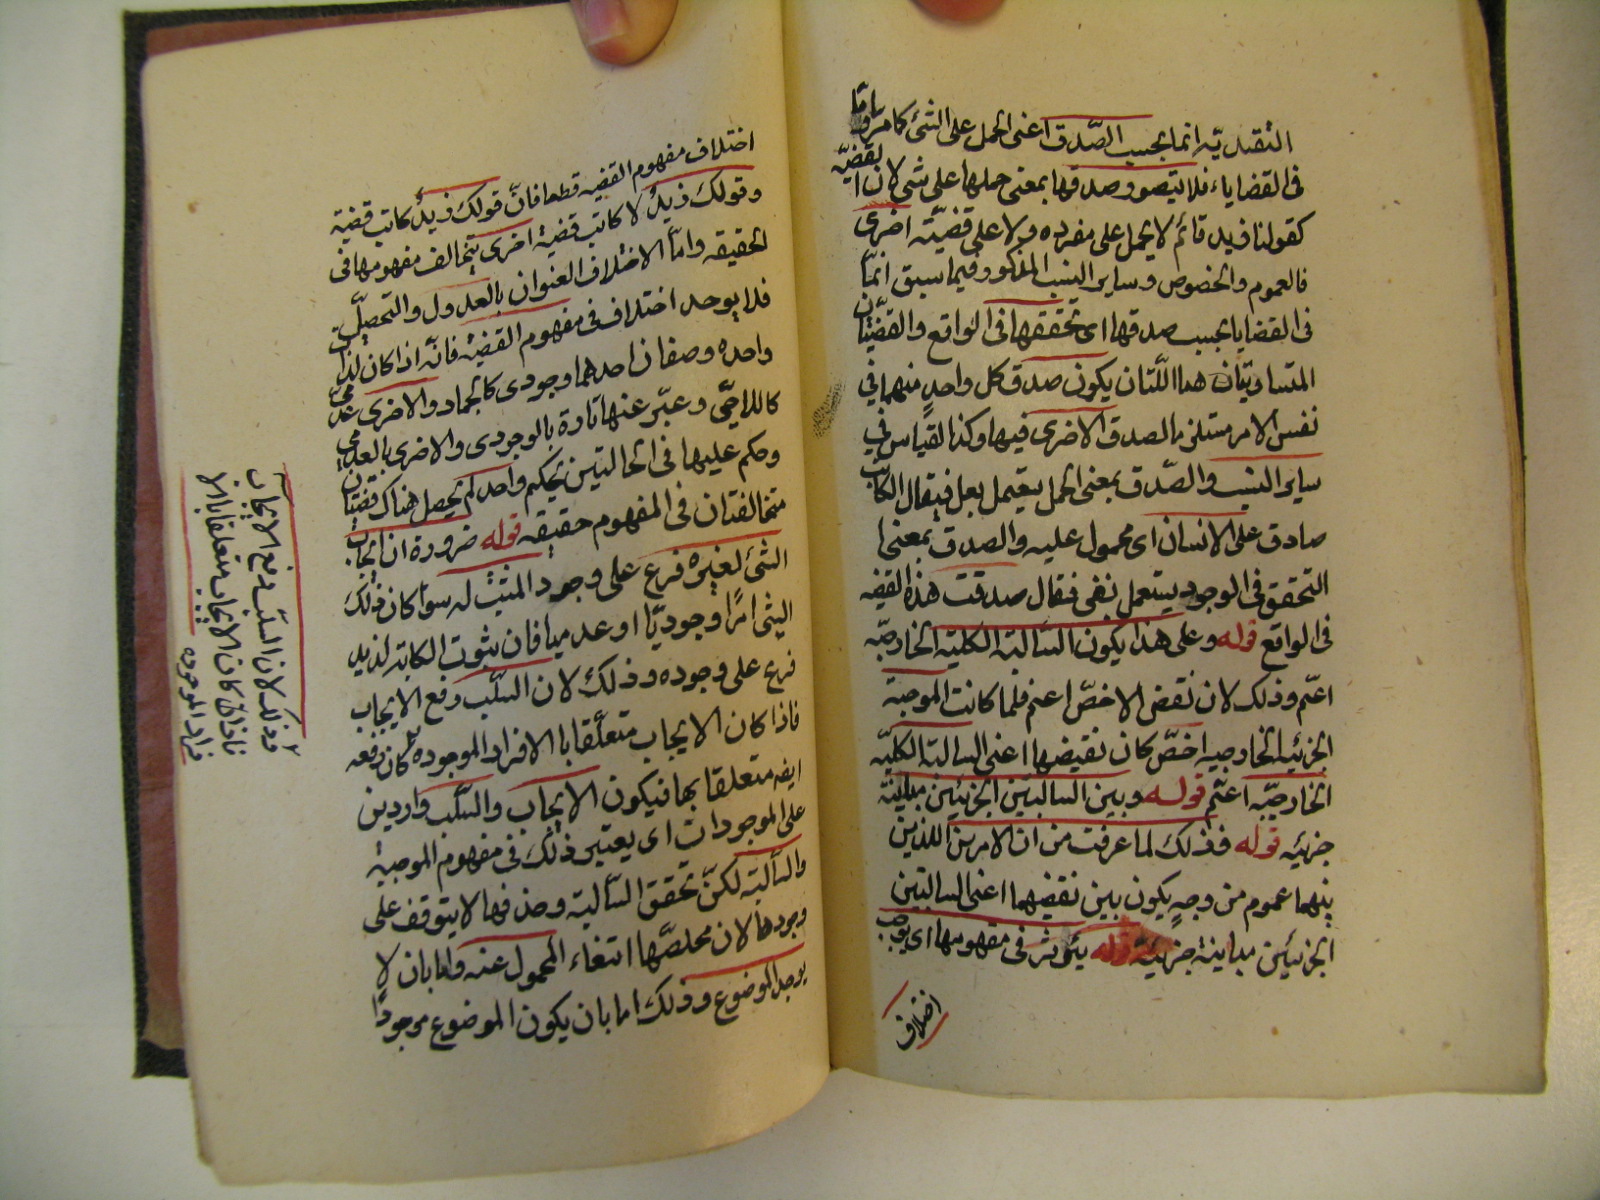 التقديريه انما بحسب الصّدق اعنى الحمل على الشئ كما مرّ واما
فى القضايا، فلا يتصور صدقها بمعنى حملها على شئ لان القضيّة
كقولنا زيد قائم لا يحمل على مفرده ولا على قضيّة اخرى
فالعموم والخصوص وساير النسب المذكورة فيما سبق انمّا
فى القضايا بحسب صدقها اى تحققها فى الواقع والقضيّتان
المتساويتان هما اللّتان يكون صدق كل واحدٍ منهما فى
نفس الامر مستلزما لصدق الاخرى فيها وكذا القياس فى
ساير النسب والصّدق بمعنى الحمل يستعمل بعلى فيقال الكاتب
صادق على الانسان اى محمول عليه والصدق بمعنى
التحقق فى الوجود يستعمل بفى فيقال صدقت هذه القضيه
فى الواقع قوله وعلى هذا يكون السّالبة الكلية الخارجيّه
اعمّ وذلك لان نقض الاخصّ اعم فلما كانت الموجبة
الجزئيه الخارجيه اخصّ كان نقيضها اعنى السالبة الكليّه
الخارجيّه اعمّ قوله وبين السالبتين الجزئيتين مباينة
جزئيه قوله فذلك لما عرفت من ان الامرين اللذين
بينهما عموم من وجهٍ يكون بين نقضيهما اعنى السالبتين
الجزئيتين مباينة جزئيّة قوله يئوثر فى مفهومها اى يوجب
اختلاف
اختلاف مفهوم القضيه قطعا فانّ قولك زيدٌ كاتب قضية
وقولك زيدٌ لا كاتب قضية اخرى يتخالف مفهومها فى
الحقيقه وامّا الاختلاف العنوان بالعدول والتحصيل
فلا يوجد اختلاف فى مفهوم القضيه فانّه اذا كان لذات
واحده وصفان احدهما وجودى كالجماد والاخرى عدمى
كاللاحىّ وعبّر عنها تارة بالوجودى والاخرى بالعدمى
وحكم عليها فى الحالتين بحكم واحد لم يحصل هناك قضيتان
متخالفتان فى المفهوم حقيقه قوله ضرورة ان ايجاب
الشئ لغيره فرع على وجود المثبت له سوا كان ذلك
الشئ امرًا وجوديّا او عدميا فان ثبوت الكتابة لزيد
فرع على وجوده وذلك لان السّلب رفع الايجاب
فاذا كان الايجاب متعلّقا با الافراد الموجوده كان رفعه
ايضه متعلقا بها فيكون الايجاب والسّلب واردين
على الموجودات اى يعتبر ذلك فى مفهوم الموجبة
والسّالبة لكنّ تحقق السّالبة وصدقها لا يتوقف على
وجودها لان محلصّها انتفاء المحمول عنه واما بان لا
يوجد الموضوع وذلك اما بان يكون الموضوع موجودًا
وذلك لان السلب رفع الايجاب
فاذا كان الايجاب متعلقا با الا
فراد الموجوده